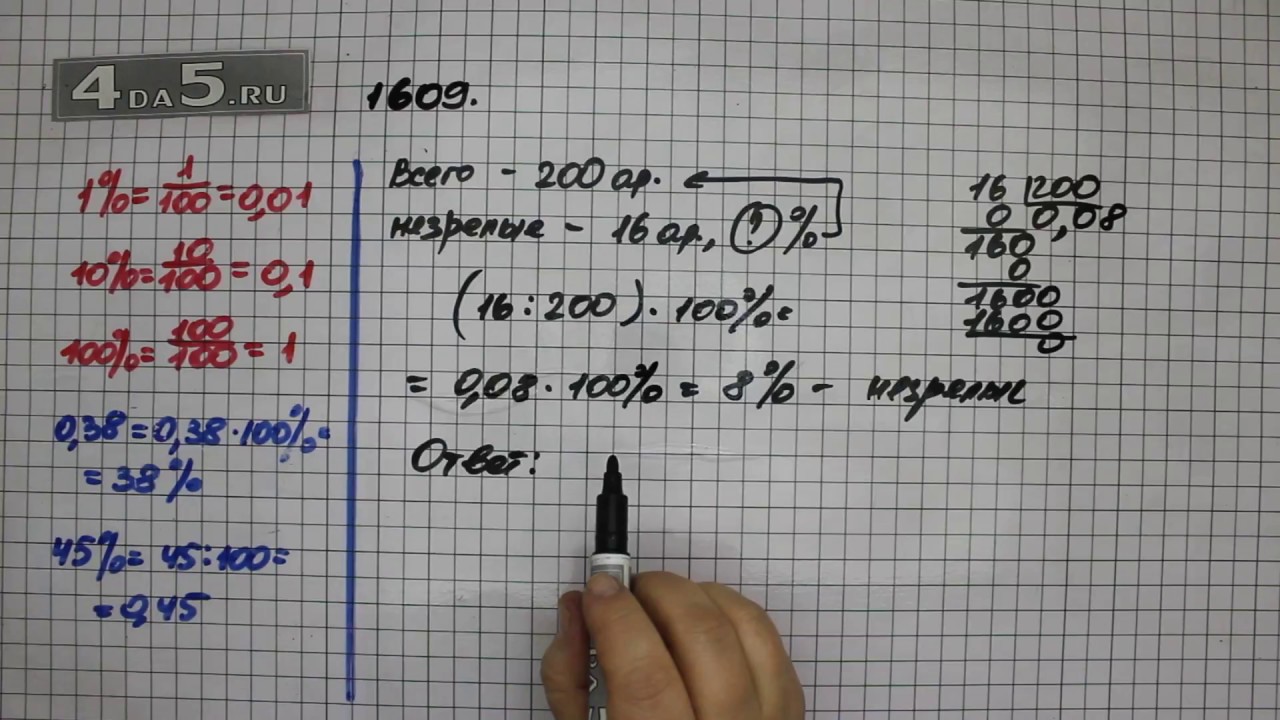 4DA5.RU
1609.
1% = 1/100 = 0,01
10% = 10/100 = 0,1
100% = 100/100 = 1
0,38 = 0,38 · 100% =
= 38%
45% = 45 : 100 =
= 0,45
Всего - 200 ар.
незрелые - 16 ар, ? %
(16 : 200) · 100% =
= 0,08 · 100% = 8% - незрелые
Ответ:
16 200
0 0,08
160
0
1600
1600
0